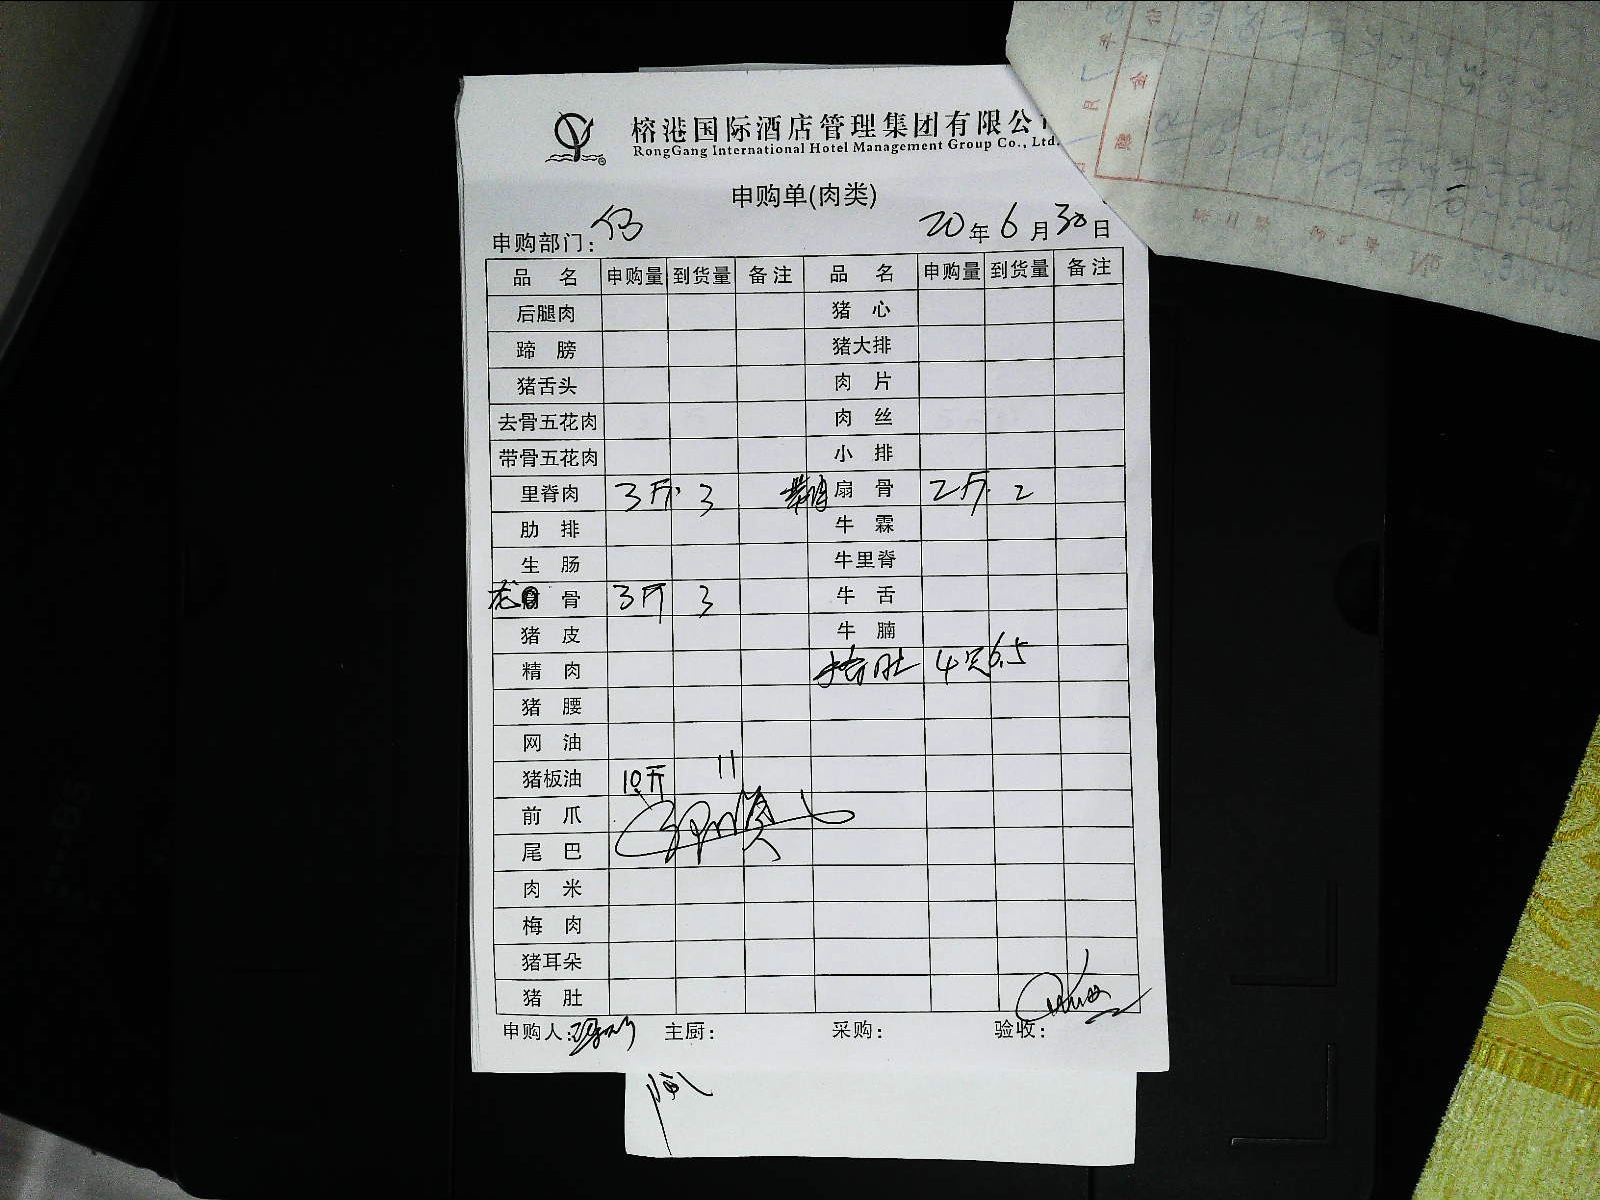 榕港国际酒店管理集团有限公
RongGang International Hotel Management Group Co., Ltd.
申购单(肉类)
申购部门:
20年6月30日
品名 申购量 到货量 备注 品名 申购量 到货量 备注
后腿肉 猪心
蹄膀 猪大排
猪舌头 肉片
去骨五花肉 肉丝
带骨五花肉 小排
里脊肉 3斤 3 带肉扇骨 2斤 2
肋排 牛霖
生肠 牛里脊
龙骨 3斤 3 牛舌
猪皮 牛腩
精肉 猪肚 4只 6.5
猪腰
网油
猪板油 10斤 11
前爪
尾巴
肉米
梅肉
猪耳朵
猪肚
申购人: 主厨: 采购: 验收: